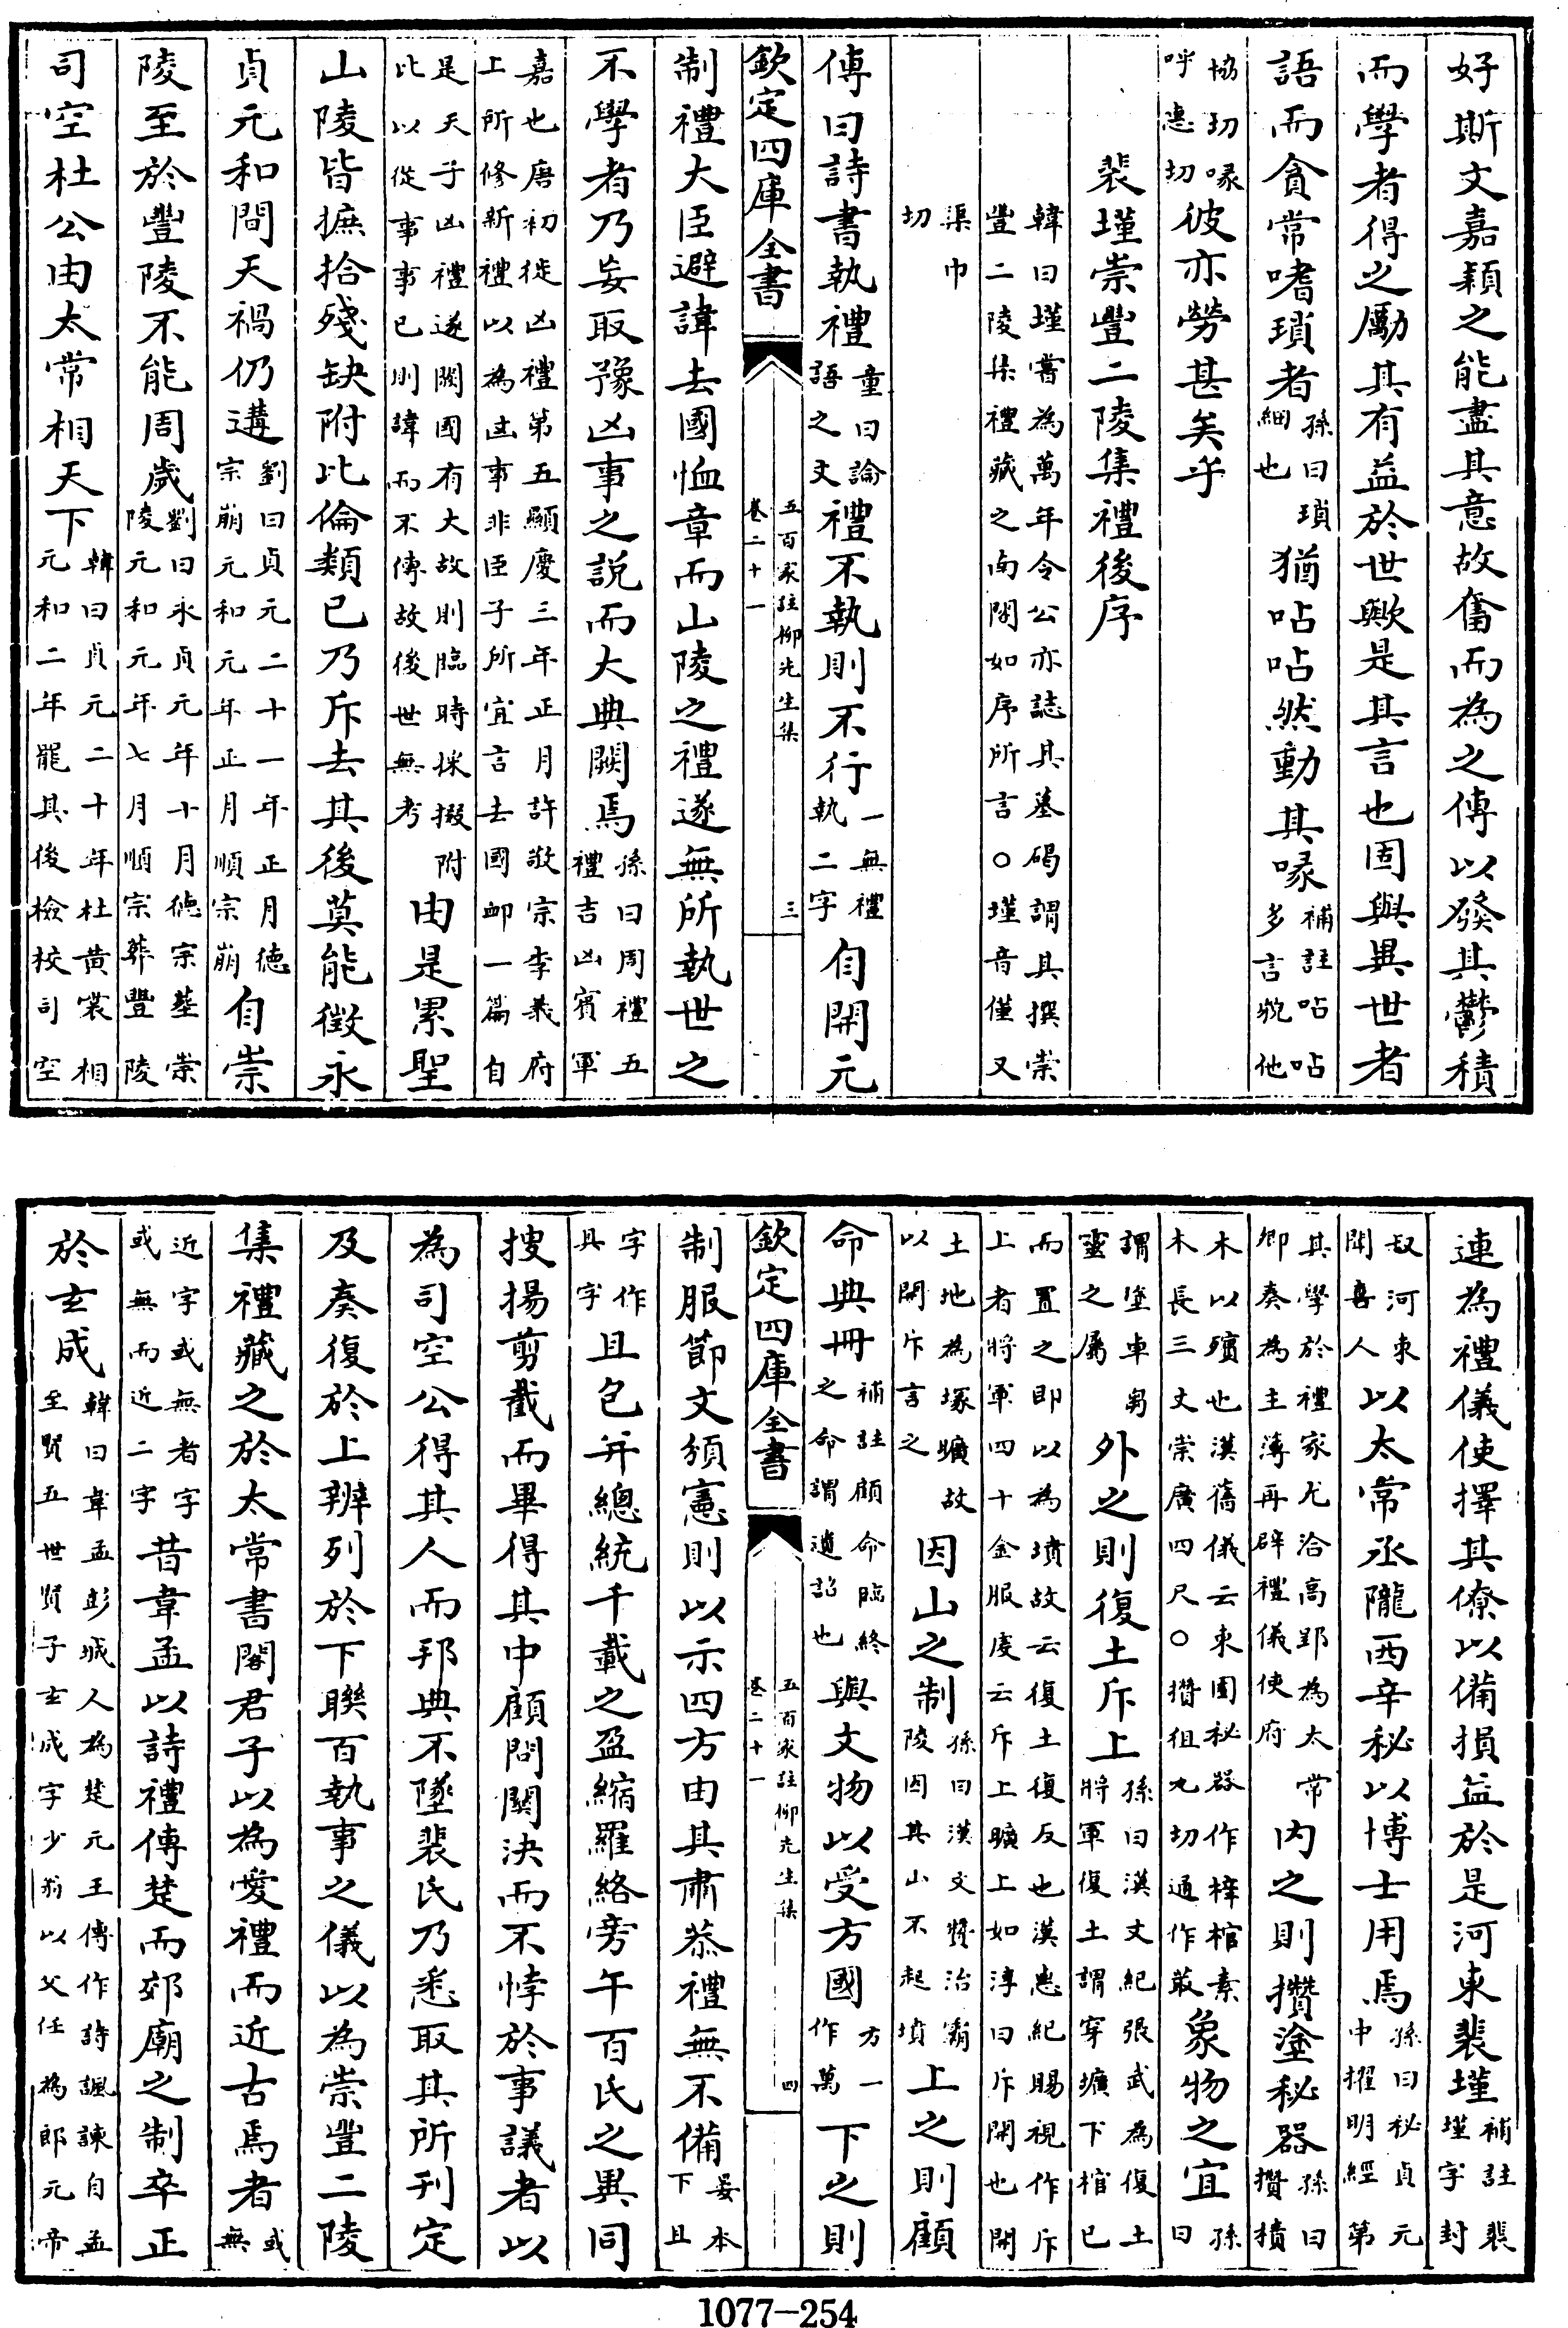 好斯文嘉穎之能盡其意故奮而為之傳以發其鬱積
而學者得之勵其有益於世歟是其言也固與異世者
語而貪常嗜瑣者孫曰瑣細也猶呫呫然動其喙補註呫呫多言貌他
協切喙呼惠切彼亦勞甚矣乎
裴墐崇豐二陵集禮後序
韓曰墐嘗為萬年令公亦誌其墓碣謂其撰崇豐二陵集禮藏之南閣如序所言○墐音僅又
渠巾切
傳曰詩書執禮童曰論語之文禮不執則不行一無禮執二字自開元
欽定四庫全書 五百家註柳先生集 卷二十一 三
制禮大臣避諱去國恤章而山陵之禮遂無所執世之
不學者乃妄取豫凶事之説而大典闕焉孫曰周禮五禮吉凶賓軍
嘉也唐初徙凶禮第五顯慶三年正月許敬宗李義府上所修新禮以為凶事非臣子所宜言去國卹一篇自
是天子凶禮遂闕國有大故則臨時採掇附比以從事事已則諱而不傳故後世無考由是累聖
山陵皆摭拾殘缺附比倫類已乃斥去其後莫能徵永
貞元和間天禍仍遘劉曰貞元二十一年正月德宗崩元和元年正月順宗崩自崇
陵至於豐陵不能周歲劉曰永貞元年十月德宗葬崇陵元和元年七月順宗葬豐陵
司空杜公由太常相天下韓曰貞元二十年杜黃裳相元和二年罷其後檢校司空
連為禮儀使擇其僚以備損益於是河東裴墐補註裴墐字封
叔河東聞喜人以太常丞隴西辛秘以博士用焉孫曰秘貞元中擢明經第
其學於禮家尤洽高郢為太常卿奏為主薄再辟禮儀使府内之則攢塗秘器孫曰攢積
木以殯也漢舊儀云東園秘器作梓棺素木長三丈崇廣四尺○攢徂丸切通作菆象物之宜孫曰
謂塗車芻靈之屬外之則復土斥上孫曰漢文紀張武為復土將軍復土謂穿壙下棺已
而置之即以為墳故云復土復反也漢惠紀賜視作斥上者將軍四十金服䖍云斥上壙上如淳曰斥開也開
土地為塚壙故以開斥言之因山之制孫曰漢文贊治霸陵因其山不起墳上之則顧
命典冊補註顧命臨終之命謂遺詔也與文物以受方國方一作萬下之則
欽定四庫全書 五百家註柳先生集 卷二十一 四
制服節文頒憲則以示四方由其肅恭禮無不備晏本下且
字作具字且包并總統千載之盈縮羅絡旁午百氏之異同
搜揚剪截而畢得其中顧問關決而不悖於事議者以
為司空公得其人而邦典不墜裴氏乃悉取其所刊定
及奏復於上辨列於下聯百執事之儀以為崇豐二陵
集禮藏之於太常書閣君子以為愛禮而近古焉者或無
近字或無者字或無而近二字昔韋孟以詩禮傅楚而郊廟之制卒正
於玄成韓曰韋孟彭城人為楚元王傅作詩諷諫自孟至賢五世賢子玄成字少翁以父任為郎元帝
1077-254